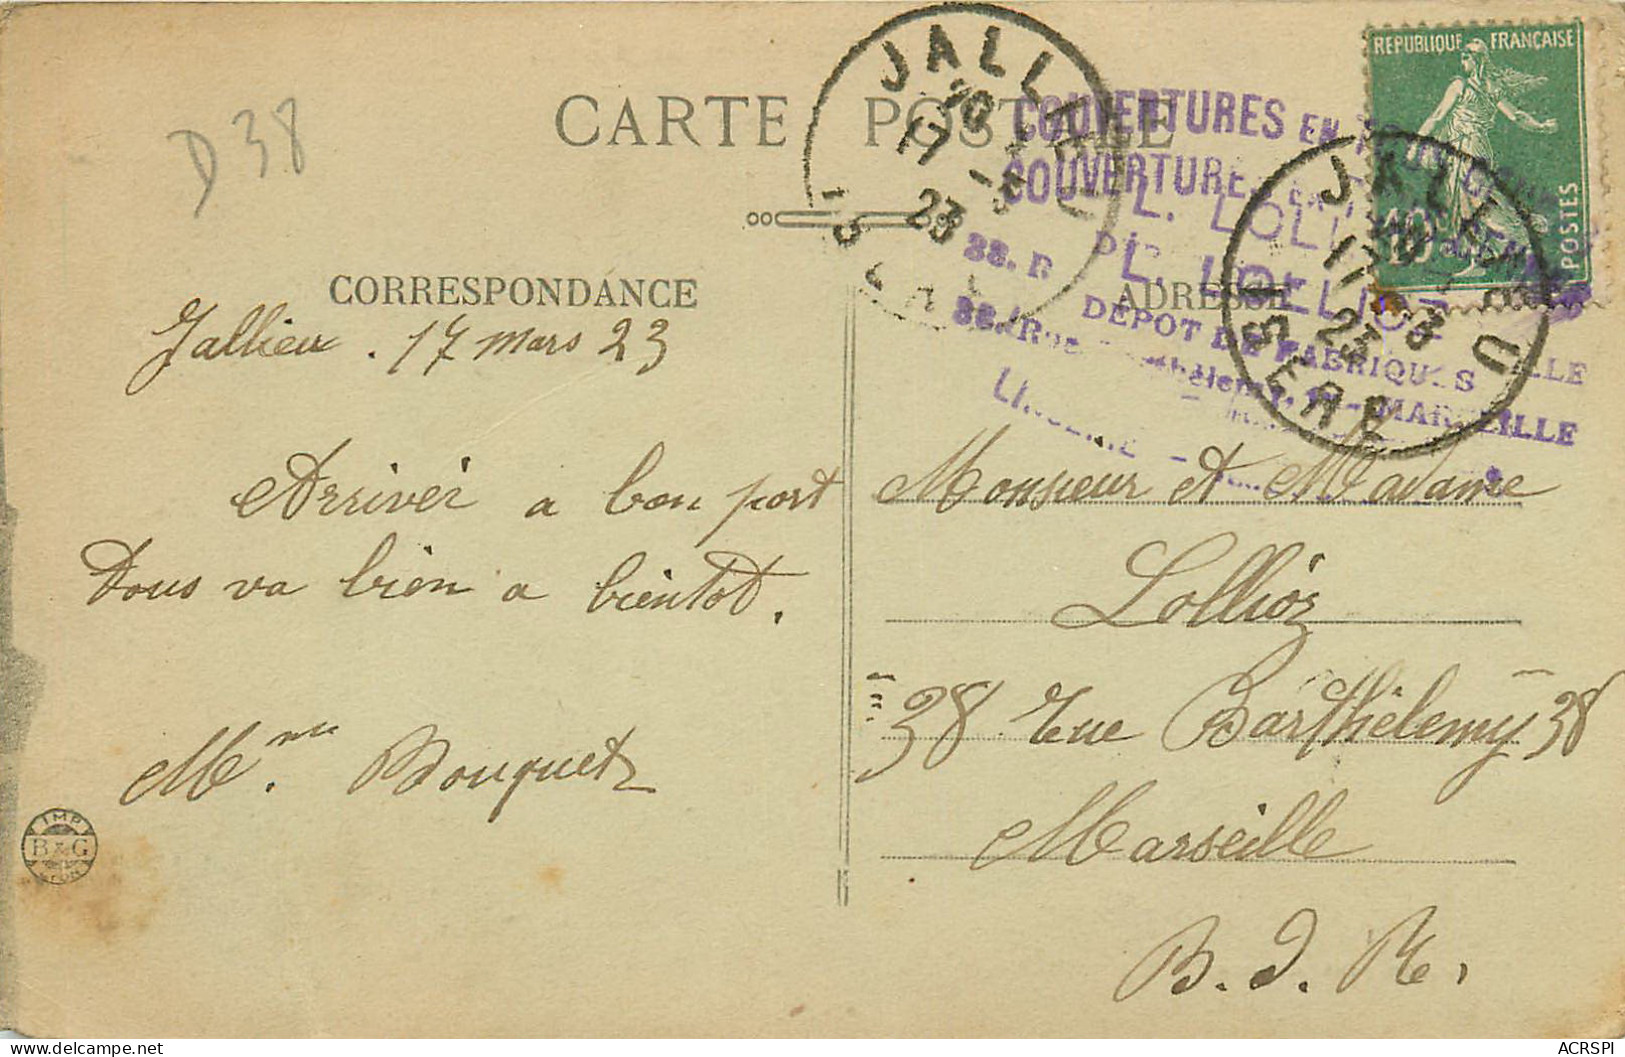 D 38
CARTE POSTALE
REPUBLIQUE FRANÇAISE
POSTES
10
JALLIEU
17 -3
23
ISERE
JALLIEU
17 -3
23
ISERE
COUVERTURES EN
COUVERTURES
L. LOLLIOZ
L. LOLLIOZ
DÉPOT DE FABRIQUES
38, Rue Barthélemy, MARSEILLE
LINGERIE
CORRESPONDANCE
ADRESSE
Jallieu. 17 mars 23
Arriver a bon port
Tous va bien a bientot.
Mme. Bouquet
Monsieur et Madame
Lollioz
38 rue Barthélemy 38
Marseille
B. D. R.
IMP
B & G
LYON
delcampe.net
ACRSPI